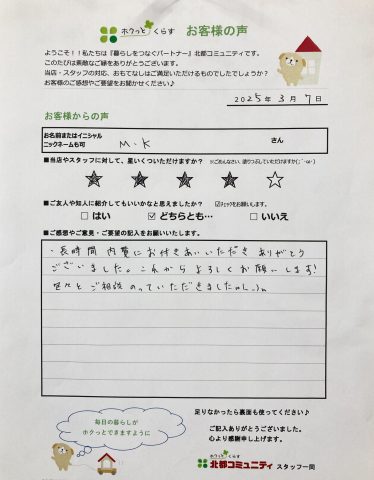 ホクっと くらす お客様の声
ようこそ！！私たちは『暮らしをつなぐパートナー』北都コミュニティです。
このたびは素敵なご縁をありがとうございます。
当店・スタッフの対応、おもてなしはご満足いただけるものでしたでしょうか？
お客様のご感想やご要望をお聞かせください♪
2025年 3月 7日
お客様からの声
お名前またはイニシャル
ニックネームも可 M.K さん
■当店やスタッフに対して、星いくついただけますか？ ※ごめんなさい、塗りつぶしていただけますか(´･ω･)
★ ★ ★ ★ ☆
■ご友人や知人に紹介してもいいかなと思えましたか？ ☑チェックをお願いします。
□ はい ☑ どちらとも… □ いいえ
■ご感想やご意見・ご要望の記入をお願いいたします。
・長時間 内覧にお付きあいいただき ありがとう
ございました。これから よろしくお願いします!
色々と ご相談 のっていただきました
足りなかったら裏面も使ってください♪
毎日の暮らしが
ホクっとできますように
ご記入ありがとうございました。
心より感謝申し上げます。
ホクっと くらす
北都コミュニティ スタッフ一同